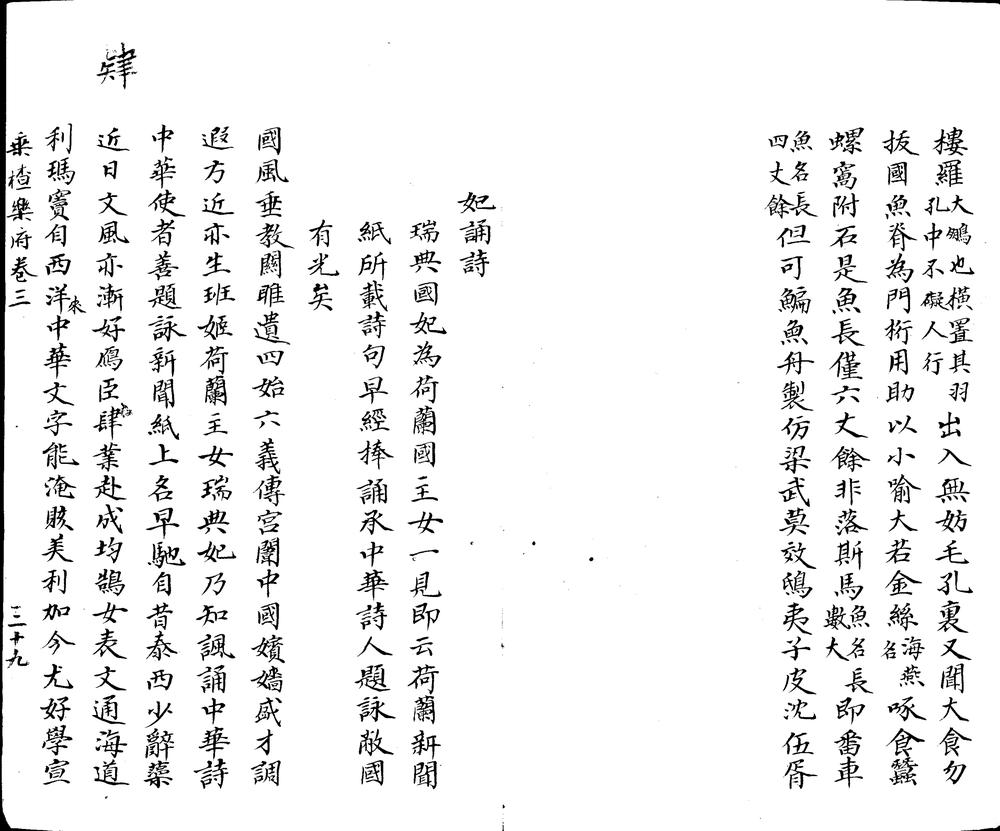 樓羅大鵬也橫置其羽孔中不礙人行出入無妨毛孔裏又聞大食勿
拔國魚脊為門桁用助以小喻大若金絲海燕名啄食蠶
螺窩附石是魚長僅六丈餘非落斯馬魚名長數大即番車
魚名長四丈餘但可鯿魚舟製仿梁武莫效鴟夷子皮沈伍胥
妃誦詩
瑞典國妃為荷蘭國主女一見即云荷蘭新聞
紙所載詩句早經捧誦承中華詩人題詠敝國
有光矣
國風垂教關雎遺四始六義傳宮闈中國嬪嬙盛才調
遐方近亦生班姬荷蘭主女瑞典妃乃知諷誦中華詩
中華使者善題詠新聞紙上名早馳自昔泰西少辭藻
近日文風亦漸好鴈臣肄業赴成均鵲女表文通海道
利瑪竇自西洋來中華文字能淹賅美利加今尤好學宣
乘楂樂府卷三
三十九
肆